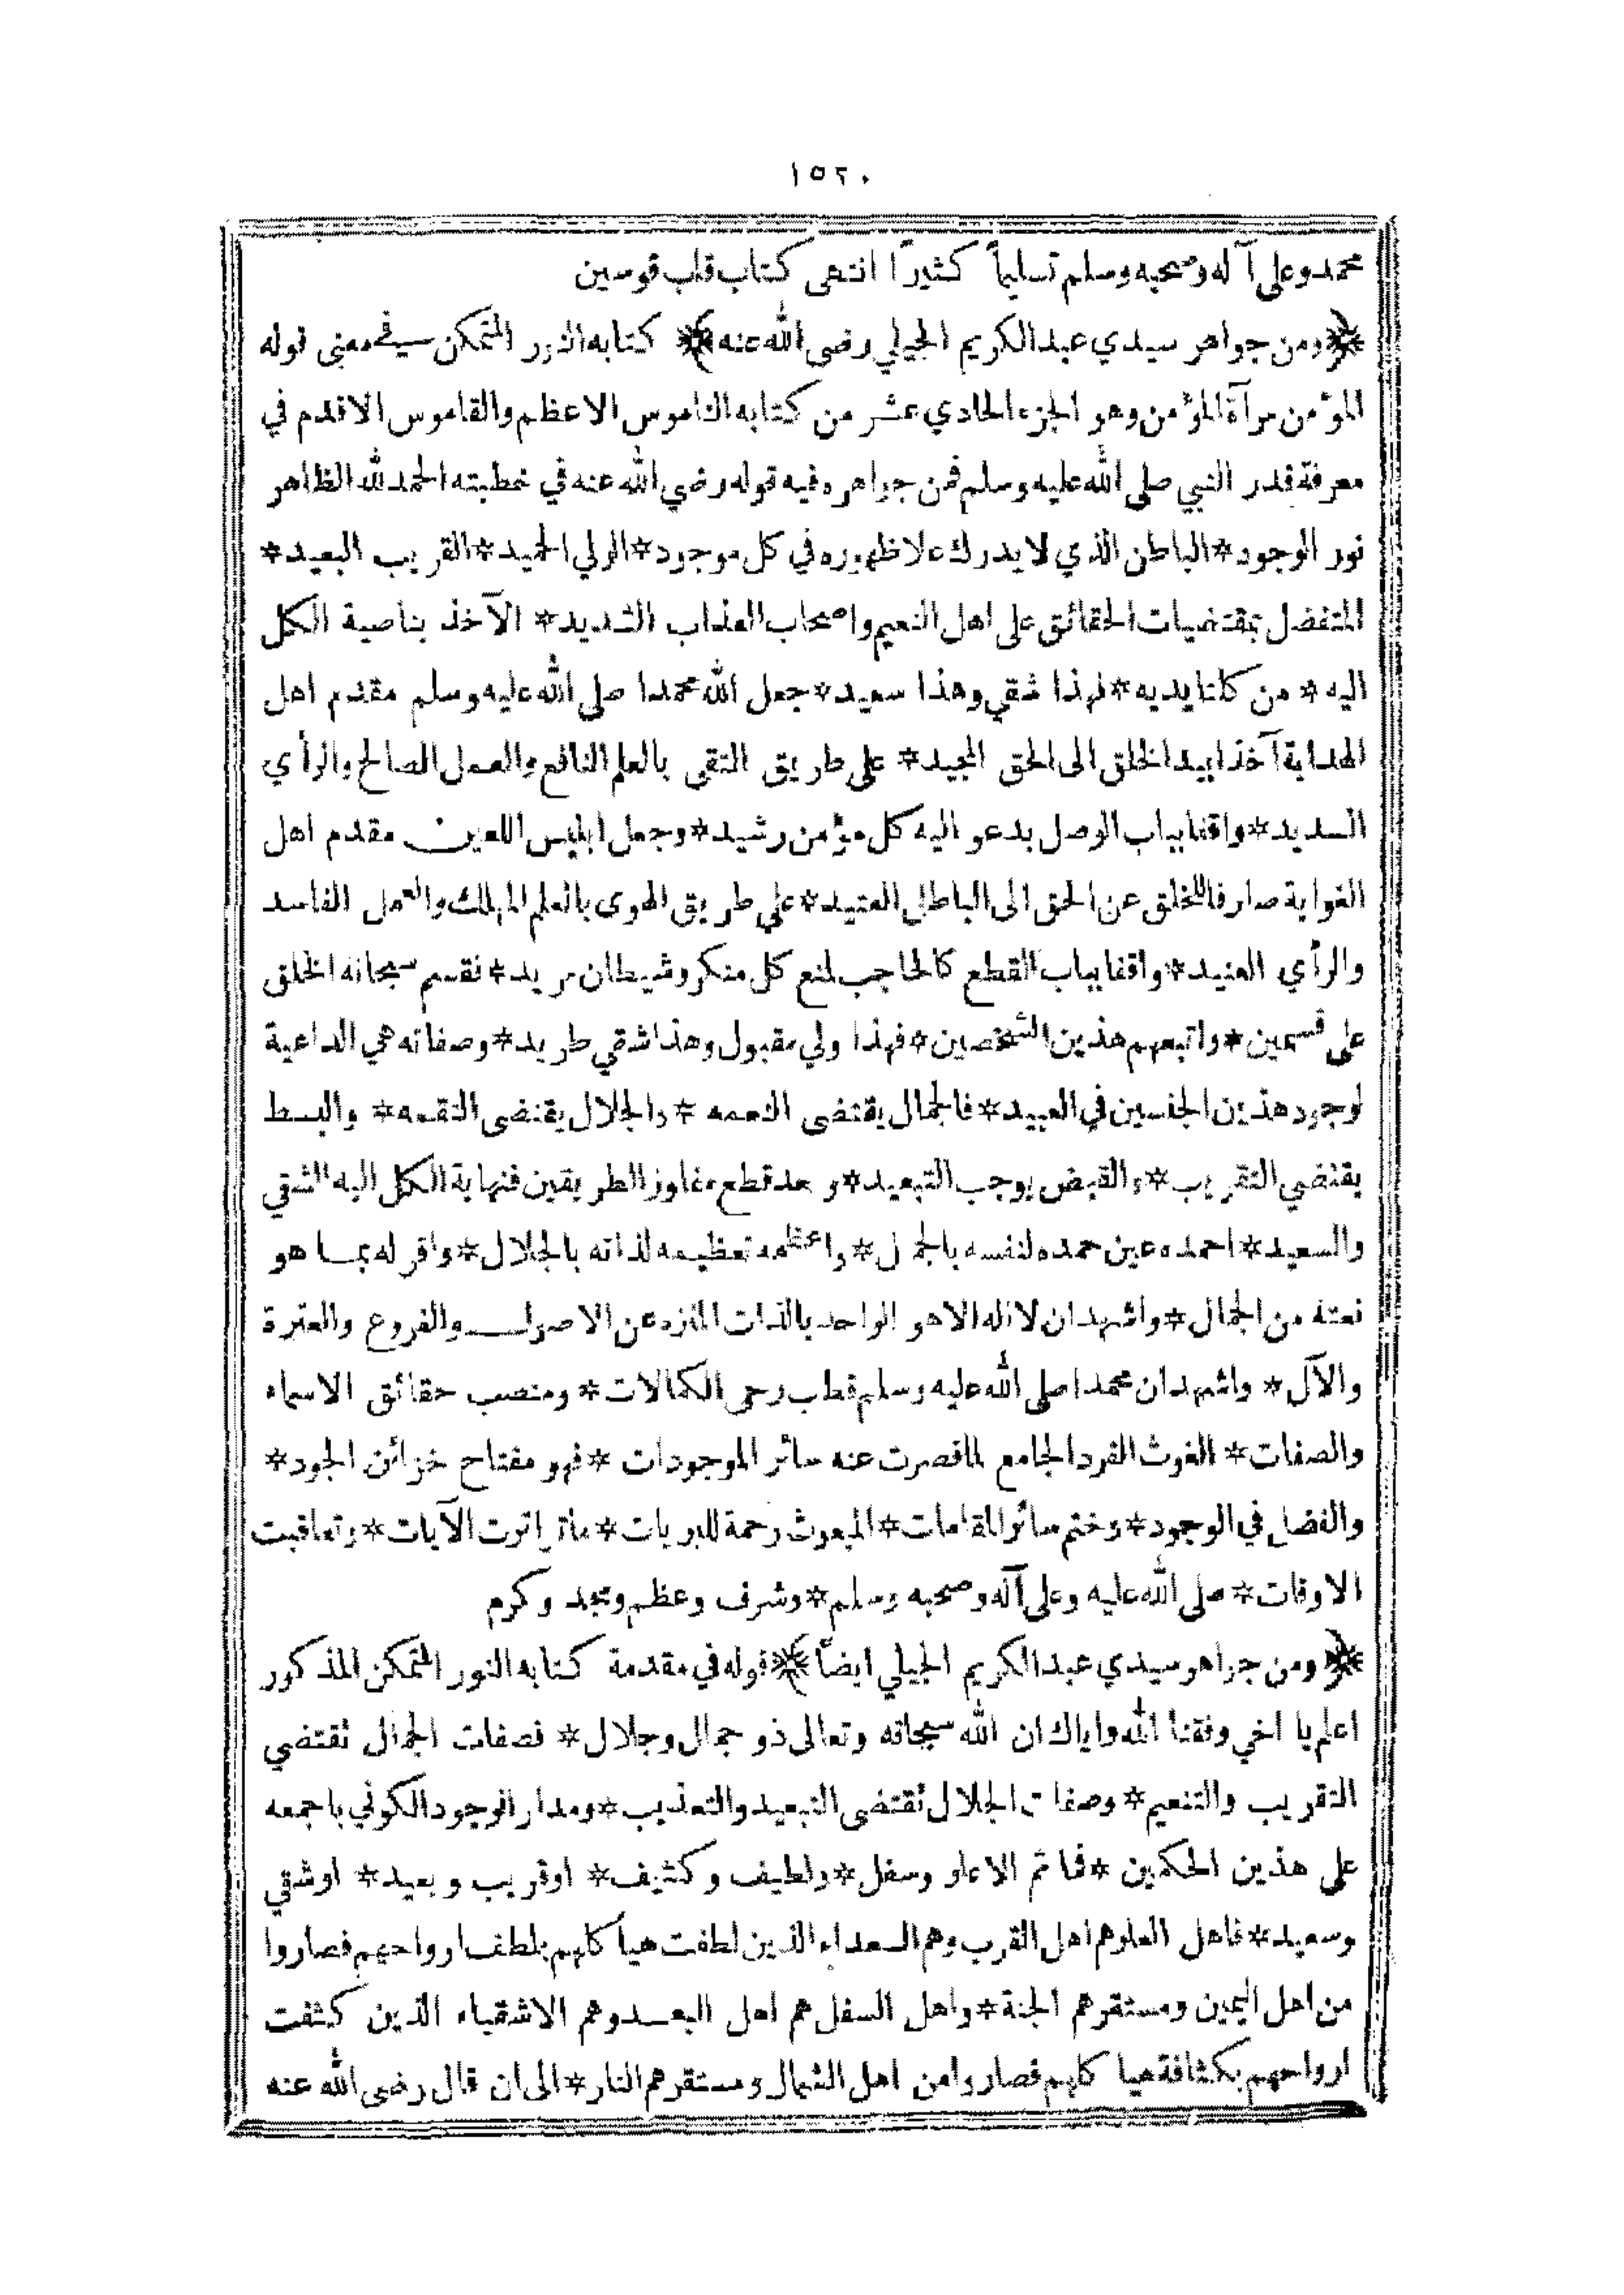 ١٥٢٠
محمد وعلى آله وصحبه وسلم تسليماً كثيراً انتهى كتاب قاب قوسين
﴿ومن جواهر سيدي عبد الكريم الجيلي رضى الله عنه﴾ كتابه النور المتمكن في معنى قوله
المؤمن مرآة المؤمن وهو الجزء الحادي عشر من كتابه الناموس الاعظم والقاموس الاقدم في
معرفة قدر النبي صلى الله عليه وسلم فمن جواهره فيه قوله رضي الله عنه في خطبته الحمد لله الظاهر
نور الوجود * الباطن الذي لا يدرك علا ظهوره في كل موجود * الولي الحميد * القريب البعيد *
المتفضل بمقتضيات الحقائق على اهل النعيم واصحاب العذاب الشديد * الآخذ بناصية الكل
اليه * من كلتا يديه * فهذا شقي وهذا سعيد * جعل الله محمدا صلى الله عليه وسلم مقدم اهل
الهداية آخذا بيد الخلق الى الحق المجيد * على طريق التقى بالعلم النافع والعمل الصالح والرأي
السديد * واقفا بباب الوصل يدعو اليه كل مؤمن رشيد * وجعل ابليس اللعين مقدم اهل
الغواية صارفا للخلق عن الحق الى الباطل العتيد * على طريق الهوى بالعلم المهلك والعمل الفاسد
والرأي العنيد * واقفا بباب القطع كالحاجب لمنع كل منكر وشيطان مريد * فقسم سبحانه الخلق
على قسمين * واتبعهم هذين الشخصين * فهذا ولي مقبول وهذا شقي طريد * وصفاته هي الداعية
لوجود هذين الجنسين في العبيد * فالجمال يقتضى النعمه * والجلال يقتضى النقمه * والبسط
يقتضي التقريب * والقبض يوجب التبعيد * وبعد قطع مفاوز الطريقين فنهاية الكل اليه الشقي
والسعيد * احمده عين حمده لنفسه بالجمال * واعظمه تعظيمه لذاته بالجلال * واقر له بما هو
نعته من الجمال * واشهد ان لا اله الا هو الواحد بالذات المنزه عن الاصول والفروع والعترة
والآل * واشهد ان محمدا صلى الله عليه وسلم قطب رحى الكمالات * ومنصب حقائق الاسماء
والصفات * الغوث الفرد الجامع لما قصرت عنه سائر الموجودات * فهو مفتاح خزائن الجود *
والفضل في الوجود * وختم سائر المقامات * المبعوث رحمة للبريات * ما تواترت الآيات * وتعاقبت
الاوقات * صلى الله عليه وعلى آله وصحبه وسلم * وشرف وعظم ومجد وكرم
﴿ومن جواهر سيدي عبد الكريم الجيلي ايضاً﴾ قوله في مقدمة كتابه النور المتمكن المذكور
اعلم يا اخي وفقنا الله واياك ان الله سبحانه وتعالى ذو جمال وجلال * فصفات الجمال تقتضي
التقريب والتنعيم * وصفات الجلال تقتضى التبعيد والتعذيب * ومدار الوجود الكوني باجمعه
على هذين الحكمين * فما ثم الا علو وسفل * ولطيف وكثيف * او قريب وبعيد * او شقي
وسعيد * فاهل العلو هم اهل القرب وهم السعداء الذين لطفت هياكلهم بلطف ارواحهم فصاروا
من اهل اليمين ومستقرهم الجنة * واهل السفل هم اهل البعد وهم الاشقياء الذين كثفت
ارواحهم بكثافة هياكلهم فصاروا من اهل الشمال ومستقرهم النار * الى ان قال رضى الله عنه